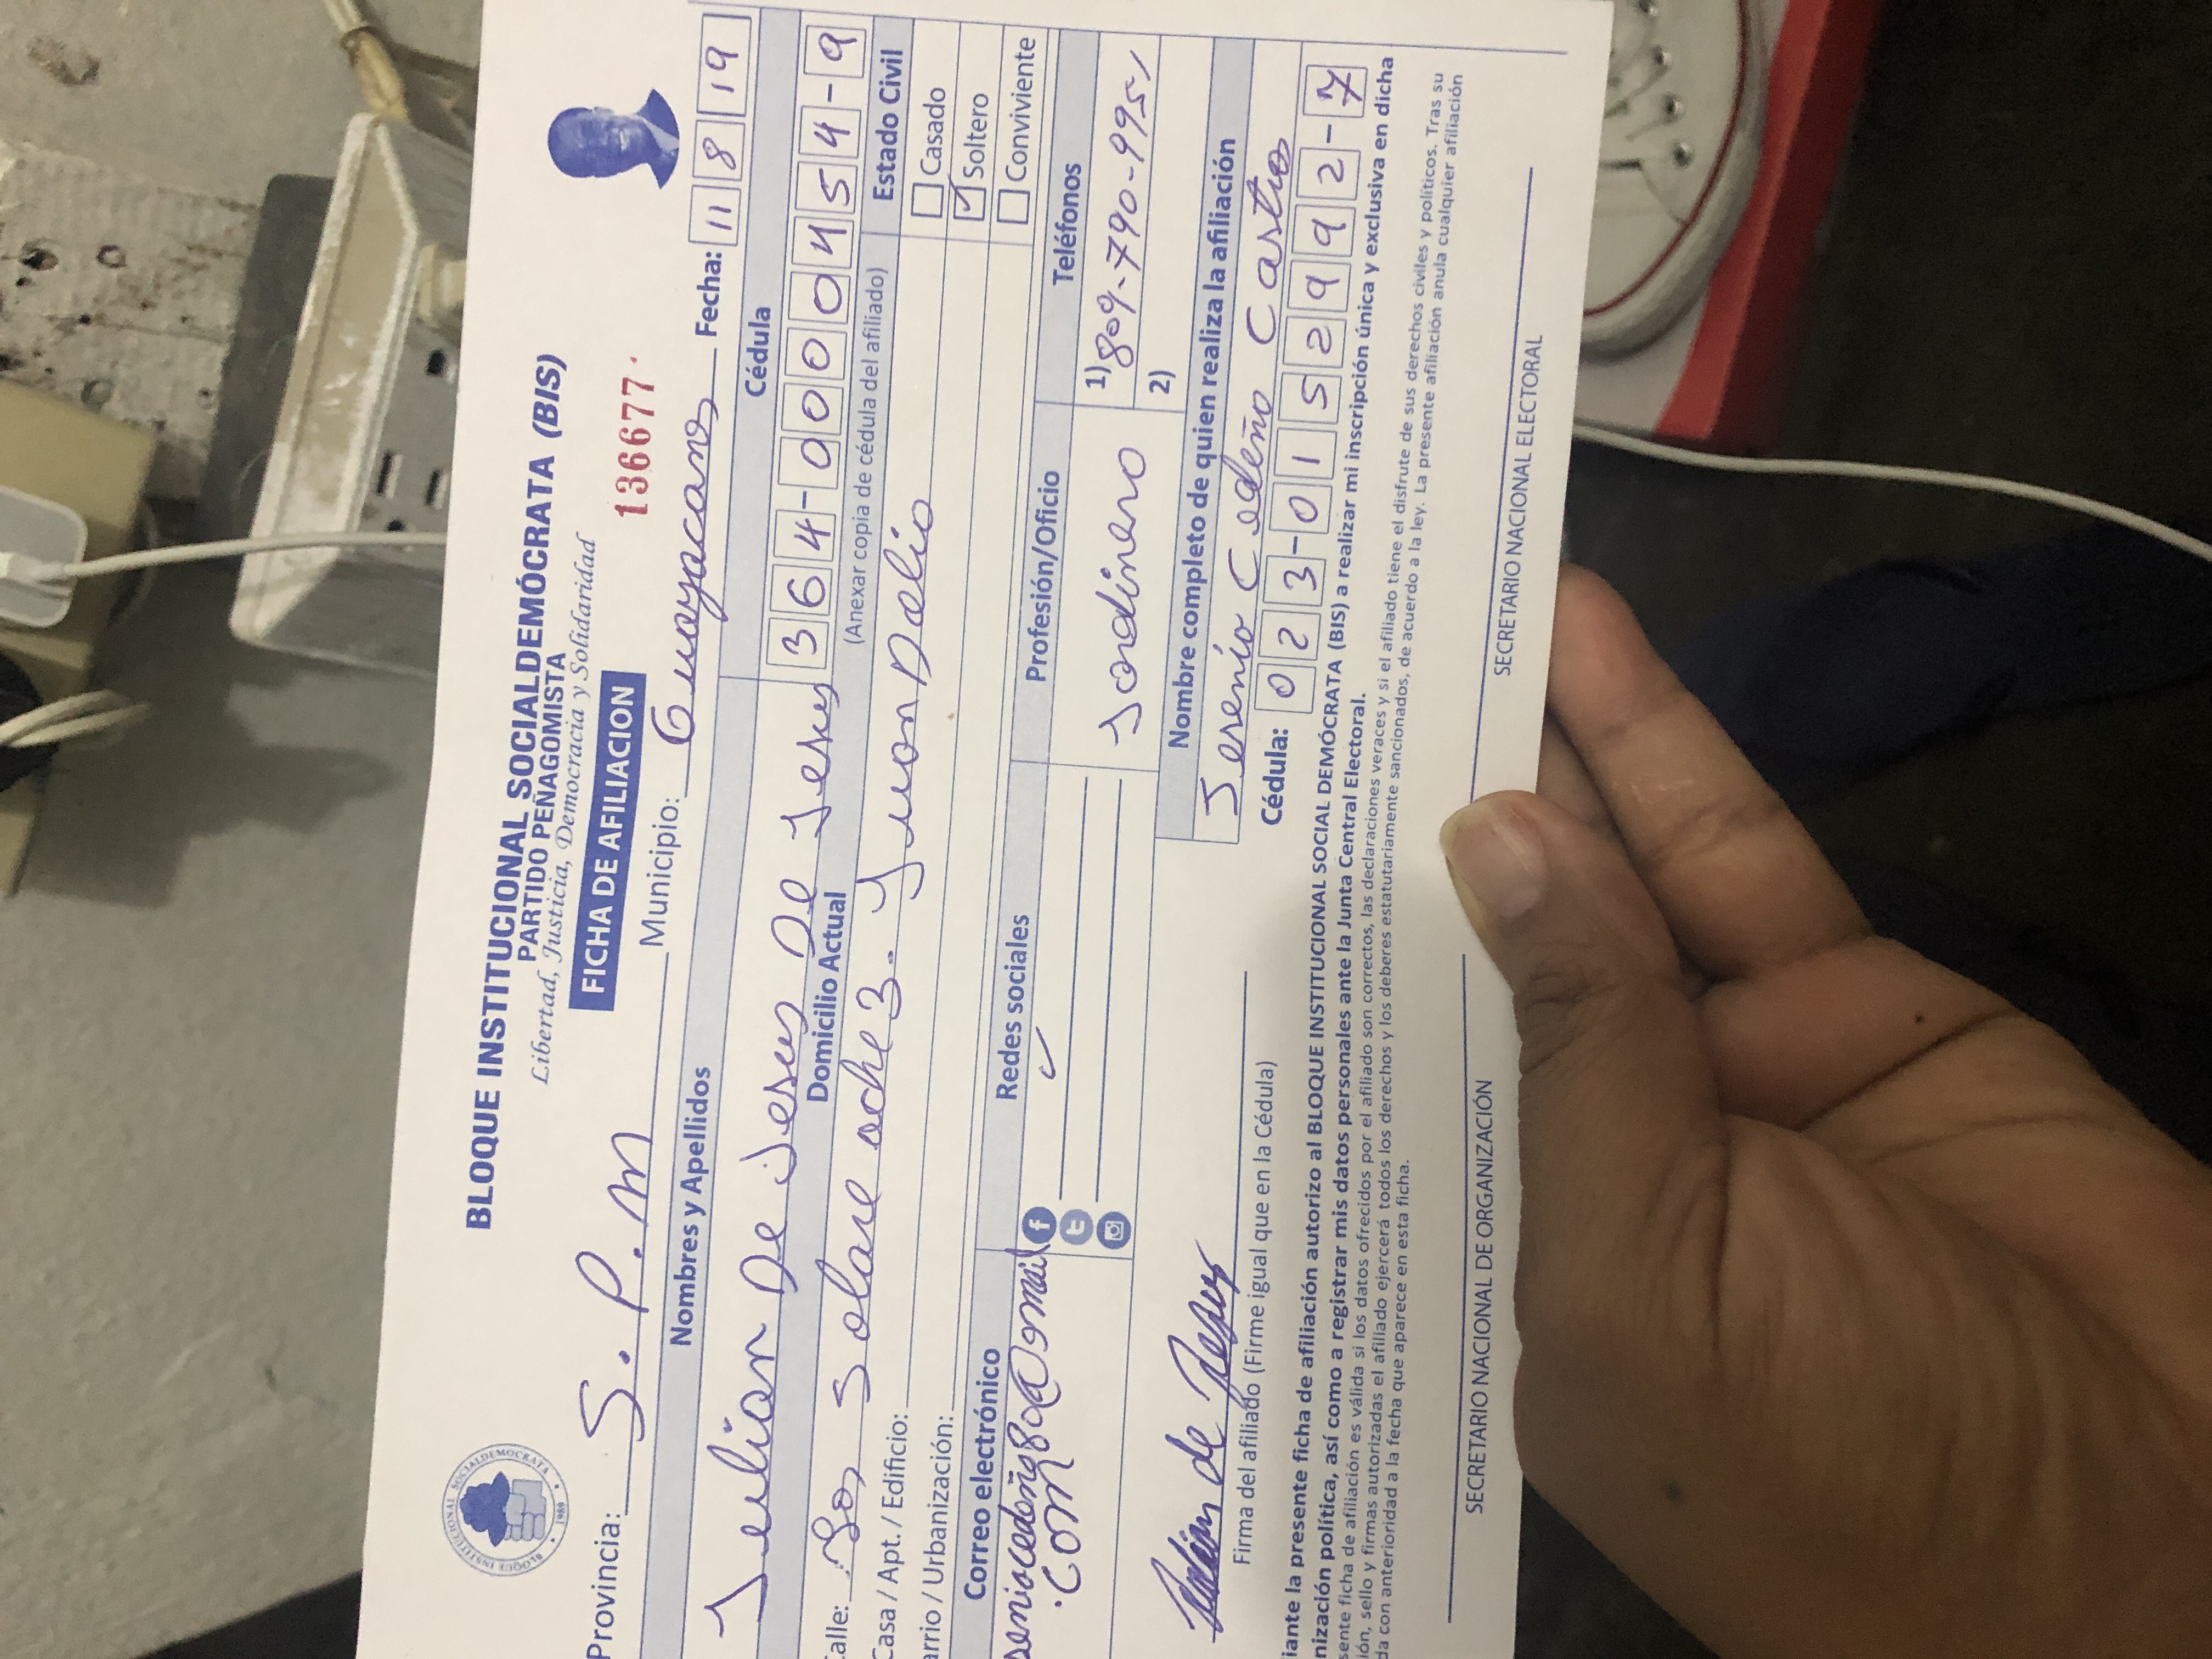 BLOQUE INSTITUCIONAL SOCIALDEMÓCRATA (BIS)
PARTIDO PEÑAGOMISTA
Libertad, Justicia, Democracia y Solidaridad
FICHA DE AFILIACION
136677
BLOQUE INSTITUCIONAL SOCIALDEMOCRATA
1989
Provincia: S. P. M Municipio: Guayacanes Fecha: 11 8 19
Nombres y Apellidos Cédula
Julian De Jesus De Jesus 364-0000454-9
Domicilio Actual (Anexar copia de cédula del afiliado) Estado Civil
alle: Los Solare 3. Juan Dolio
Casado
Casa / Apt. / Edificio: Soltero
arrio / Urbanización: Conviviente
Correo electrónico Redes sociales Profesión/Oficio Teléfonos
seniocedeñg80@gmail
.com
Jardinero
1) 809-790-9951
2)
Nombre completo de quien realiza la afiliación
Jesenio Cedeño Castro
Cédula: 023-0152992-7
Julian de Jesus
Firma del afiliado (Firme igual que en la Cédula)
iante la presente ficha de afiliación autorizo al BLOQUE INSTITUCIONAL SOCIAL DEMÓCRATA (BIS) a realizar mi inscripción única y exclusiva en dicha
nización política, así como a registrar mis datos personales ante la Junta Central Electoral.
sente ficha de afiliación es válida si los datos ofrecidos por el afiliado son correctos, las declaraciones veraces y si el afiliado tiene el disfrute de sus derechos civiles y políticos. Tras su
ión, sello y firmas autorizadas el afiliado ejercerá todos los derechos y los deberes estatutariamente sancionados, de acuerdo a la ley. La presente afiliación anula cualquier afiliación
da con anterioridad a la fecha que aparece en esta ficha.
SECRETARIO NACIONAL DE ORGANIZACIÓN SECRETARIO NACIONAL ELECTORAL